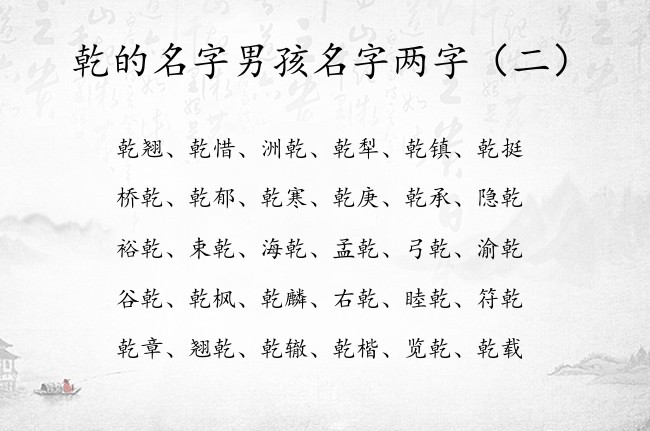 乾的名字男孩名字两字（二）
乾翘、乾惜、洲乾、乾犁、乾镇、乾挺
桥乾、乾郁、乾寒、乾庚、乾承、隐乾
裕乾、束乾、海乾、孟乾、弓乾、渝乾
谷乾、乾枫、乾麟、右乾、睦乾、符乾
乾章、翘乾、乾辙、乾楷、览乾、乾载